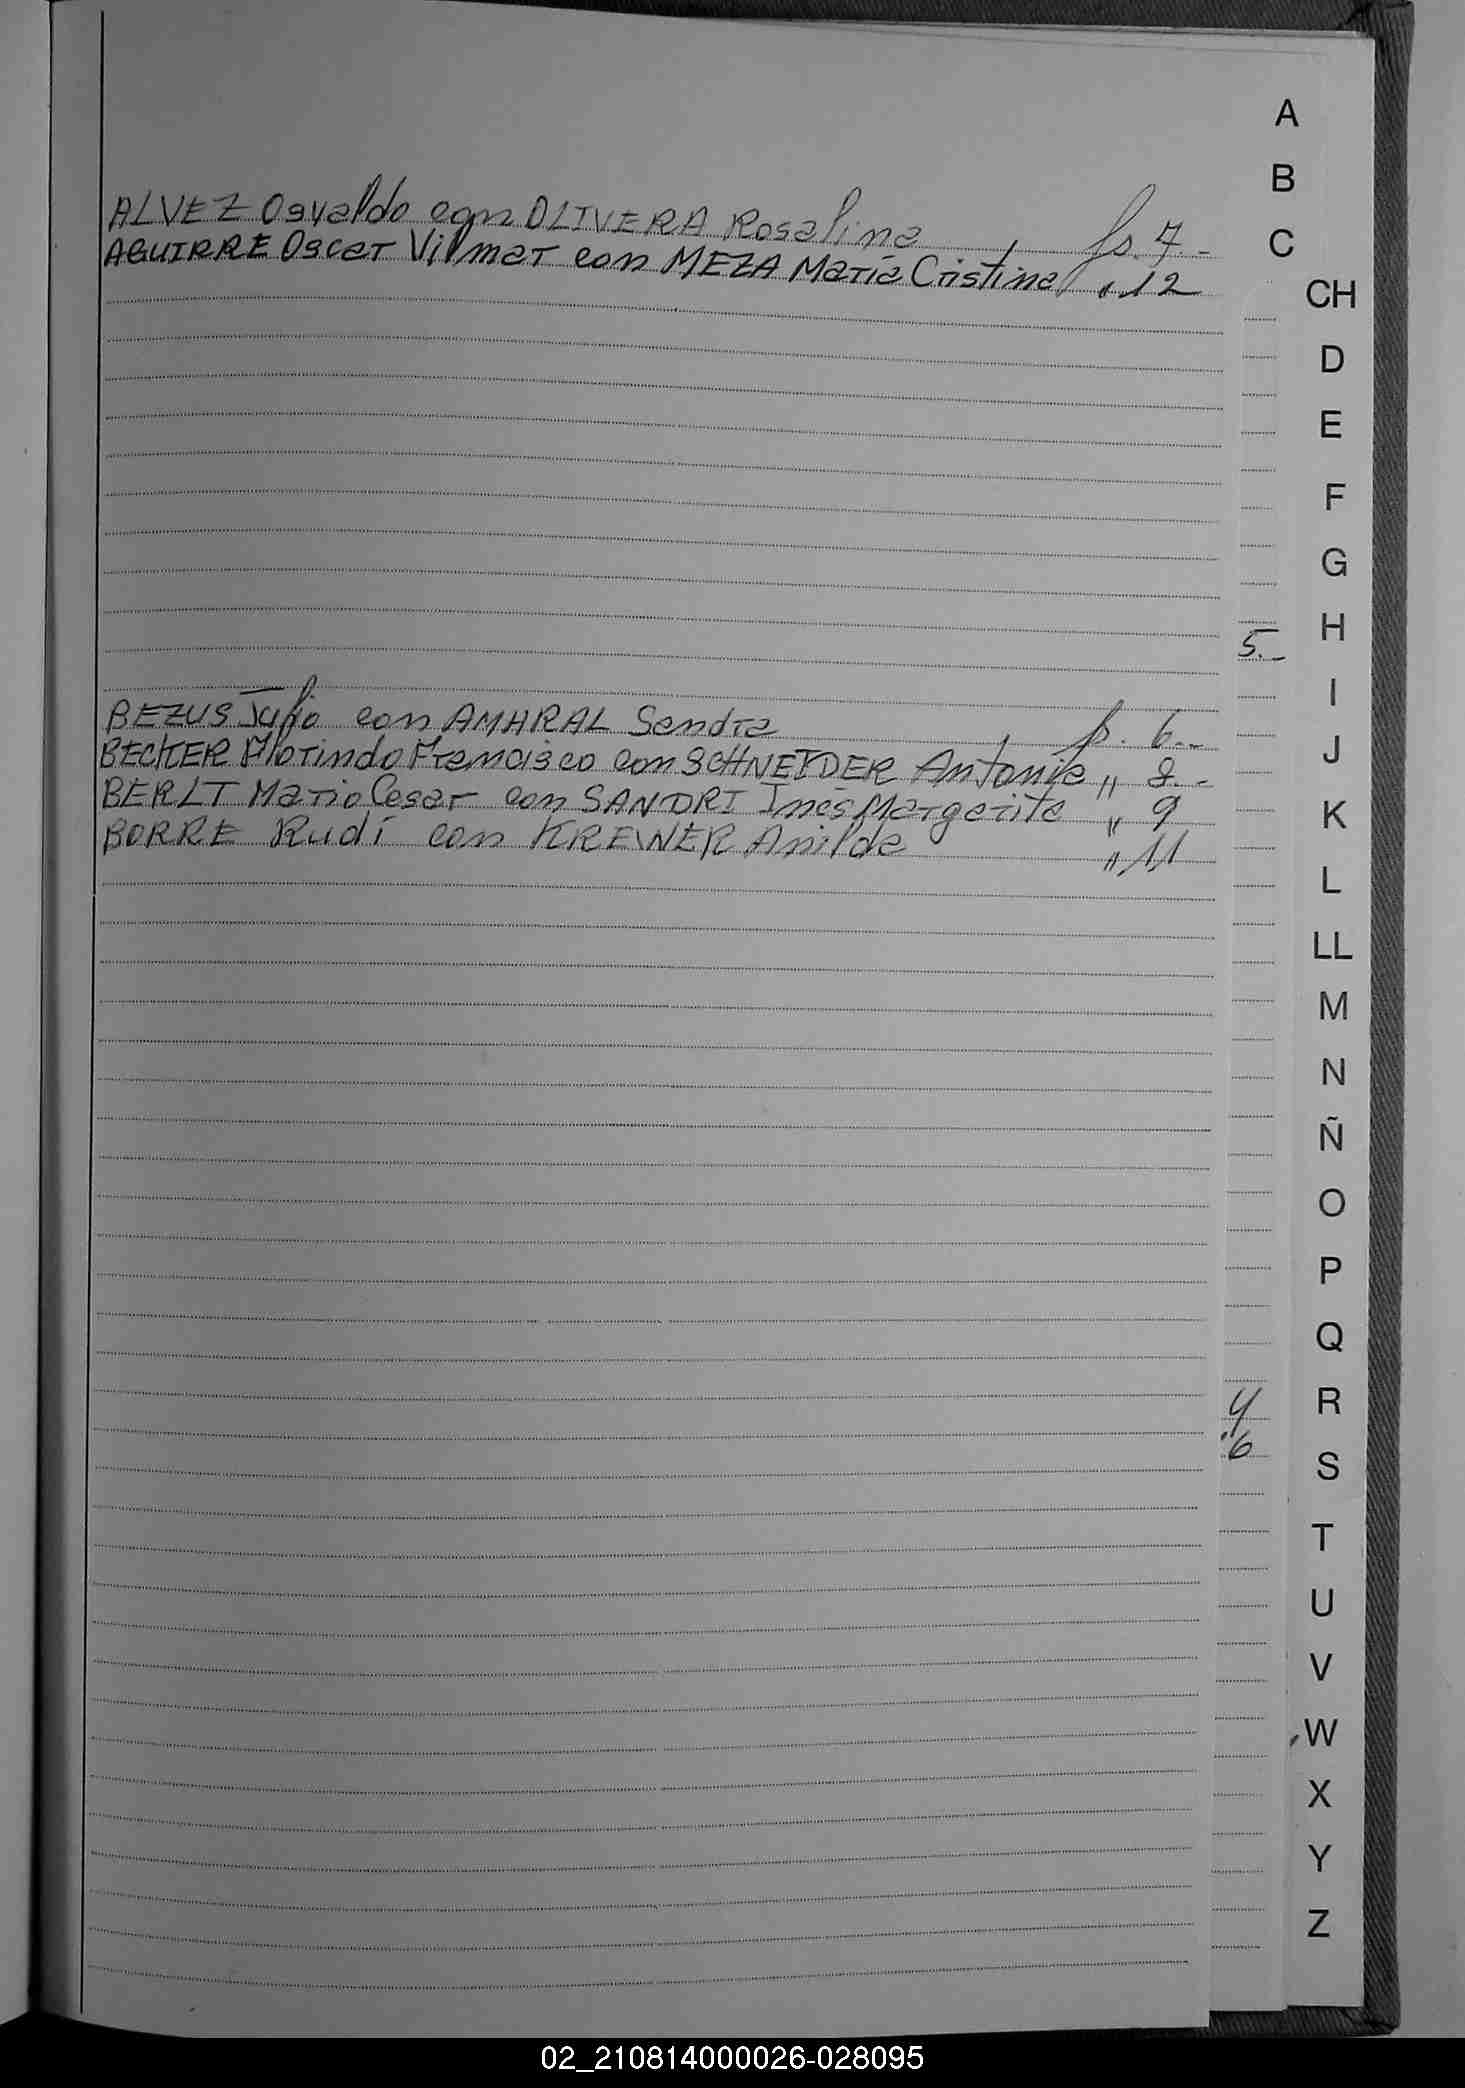 ALVEZ Osvaldo con OLIVERA Rosalina fs. 7.-
AGUIRRE Oscar Vilmar con MEZA María Cristina " 12
BEZUS Julio con AMARAL Sandra fs. 6.-
BECKER Florindo Francisco con SCHNEIDER Antonia " 8.-
BERLT Mario Cesar con SANDRI Inés Margarita " 9
BORRE Rudi con KREWER Anilda " 11
5.-
4
"6
A
B
C
CH
D
E
F
G
H
I
J
K
L
LL
M
N
Ñ
O
P
Q
R
S
T
U
V
W
X
Y
Z
02_210814000026-028095